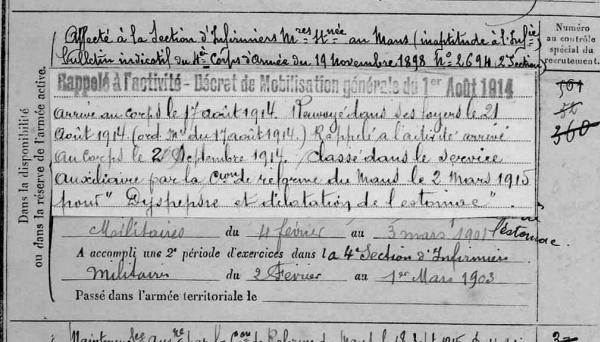 Affecté à la Section d'Infirmiers Mres Stnée au Mans (inaptitude à l'Infie)
bulletin indicatif du 4è Corps d'Armée du 19 Novembre 1898 No 2694 2e Section)
Rappelé à l'activité - Décret de Mobilisation générale du 1er Août 1914
arrivé au corps le 17 août 1914. Renvoyé dans ses foyers le 21
Août 1914. (ord. Mre du 17 août 1914.) Rappelé à l'activité arrivé
au corps le 2 Septembre 1914. Classé dans le service
auxiliaire par la Cion de réforme du Mans le 2 mars 1915
pour "Dyspepsie et dilatation de l'estomac".
Militaires du 4 février au 3 mars 1901 l'estomac.
A accompli une 2e période d'exercices dans la 4e Section d'Infirmiers
Militaires du 2 Février au 1er Mars 1903
Passé dans l'armée territoriale le
Dans la disponibilité
ou dans la réserve de l'armée active.
Numéro
au contrôle
spécial du
recrutement.
360